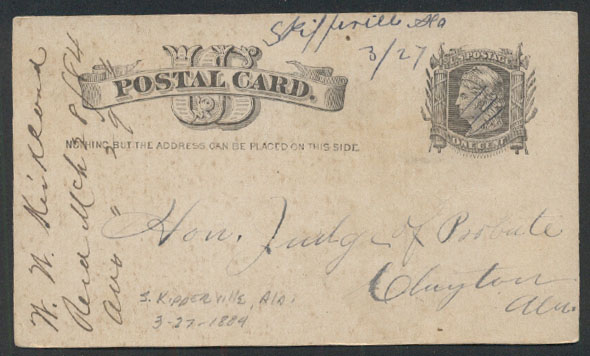 Skipperville Ala
3/27
U.S. POSTAGE
ONE CENT
US
POSTAL CARD.
NOTHING BUT THE ADDRESS CAN BE PLACED ON THIS SIDE.
W. W.
Recd Mch 28 1884
Ans " 29 "
Hon. Judge of Probate
Clayton
Ala.
S. KIPPERVILLE, Ala.
3-27-1884